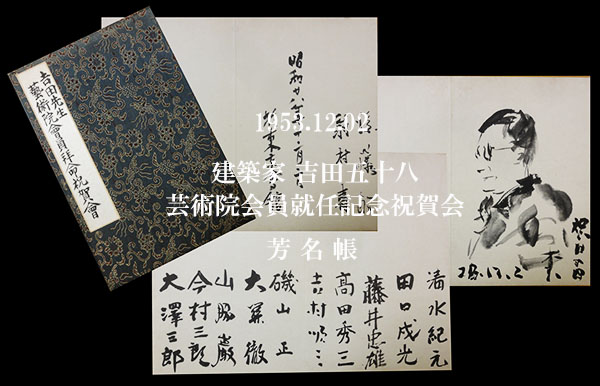 吉田先生
藝術院會員拜命祝賀會
昭和廿八年十二月二日
1953.12.02
建築家 吉田五十八
芸術院会員就任記念祝賀会
芳名帳
28.12.2
清水紀元
田口成光
藤井忠雄
高田秀三
吉村順三
磯山正
大冝徹
山脇巌
今村三郎
大澤三郎